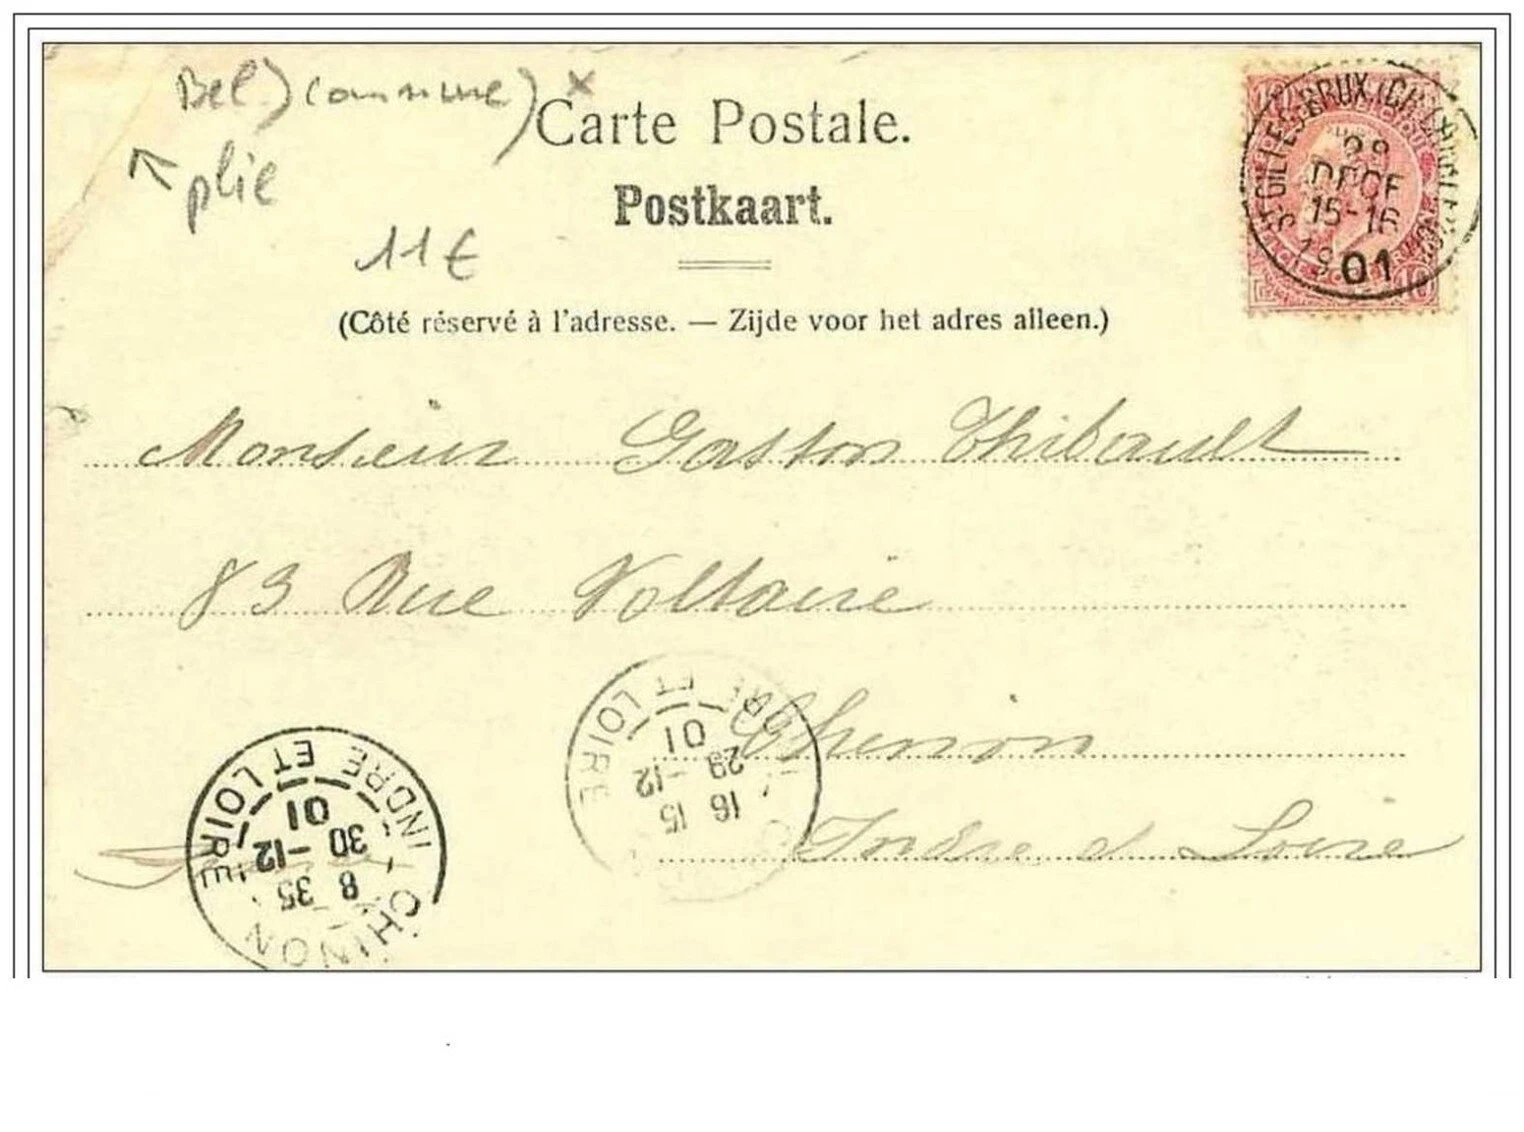 Bel) (commune) x
plié
11 €
Carte Postale.
Postkaart.
(Côté réservé à l'adresse. — Zijde voor het adres alleen.)
ST GILLES-BRUX. (CH.
28
DECE
15-16
1901
10
Monsieur Gaston Thibault
83 Rue Voltaire
Chinon
Indre et Loire
ET LOIRE
16 15
29 -12
01
CHINON
INDRE ET LOIRE
8 35
30 -12
01